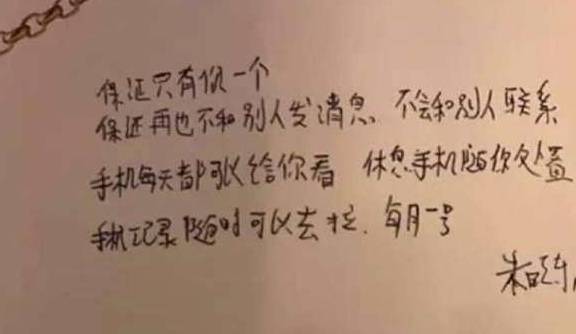 保证只有你一个
保证再也不和别人发消息 不会和别人联系
手机每天都可以给你看 休息手机随你处置
手机记录随时可以去拉.每月一号
朱